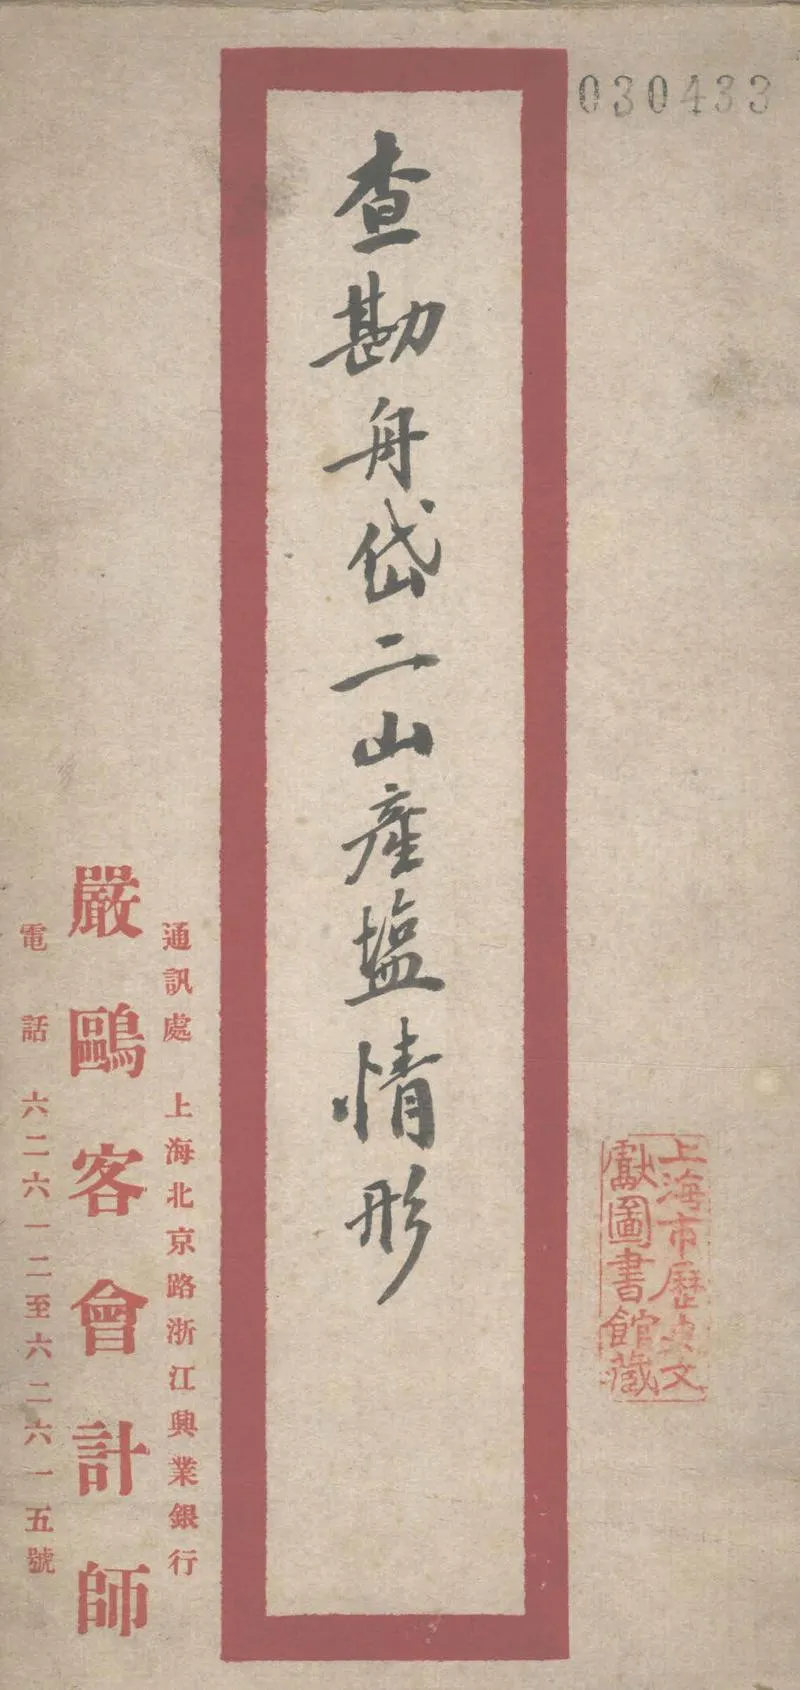 030433
查勘舟岱二山産塩情形
上海市歷史文
獻圖書館藏
通訊處 上海北京路浙江興業銀行
嚴鷗客會計師
電話 六二六一二至六二六一五號